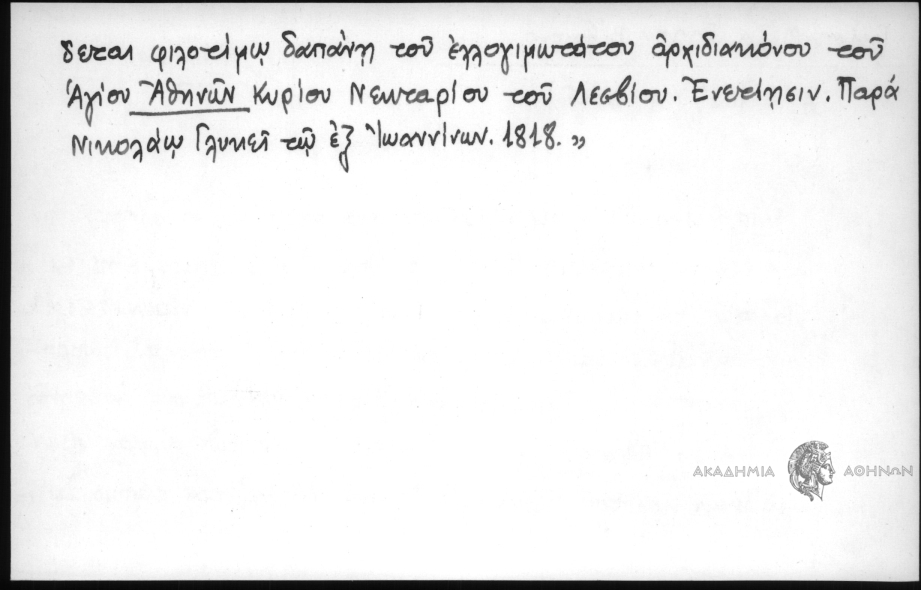 δεται φιλοτίμῳ δαπάνῃ τοῦ ἐλλογιμωτάτου ἀρχιδιακόνου τοῦ
Ἁγίου Ἀθηνῶν Κυρίου Νεκταρίου τοῦ Λεσβίου. Ἐνετίῃσιν. Παρά
Νικολάῳ Γλυκεῖ τῷ ἐξ Ἰωαννίνων. 1818. »
ΑΚΑΔΗΜΙΑ ΑΘΗΝΩΝ